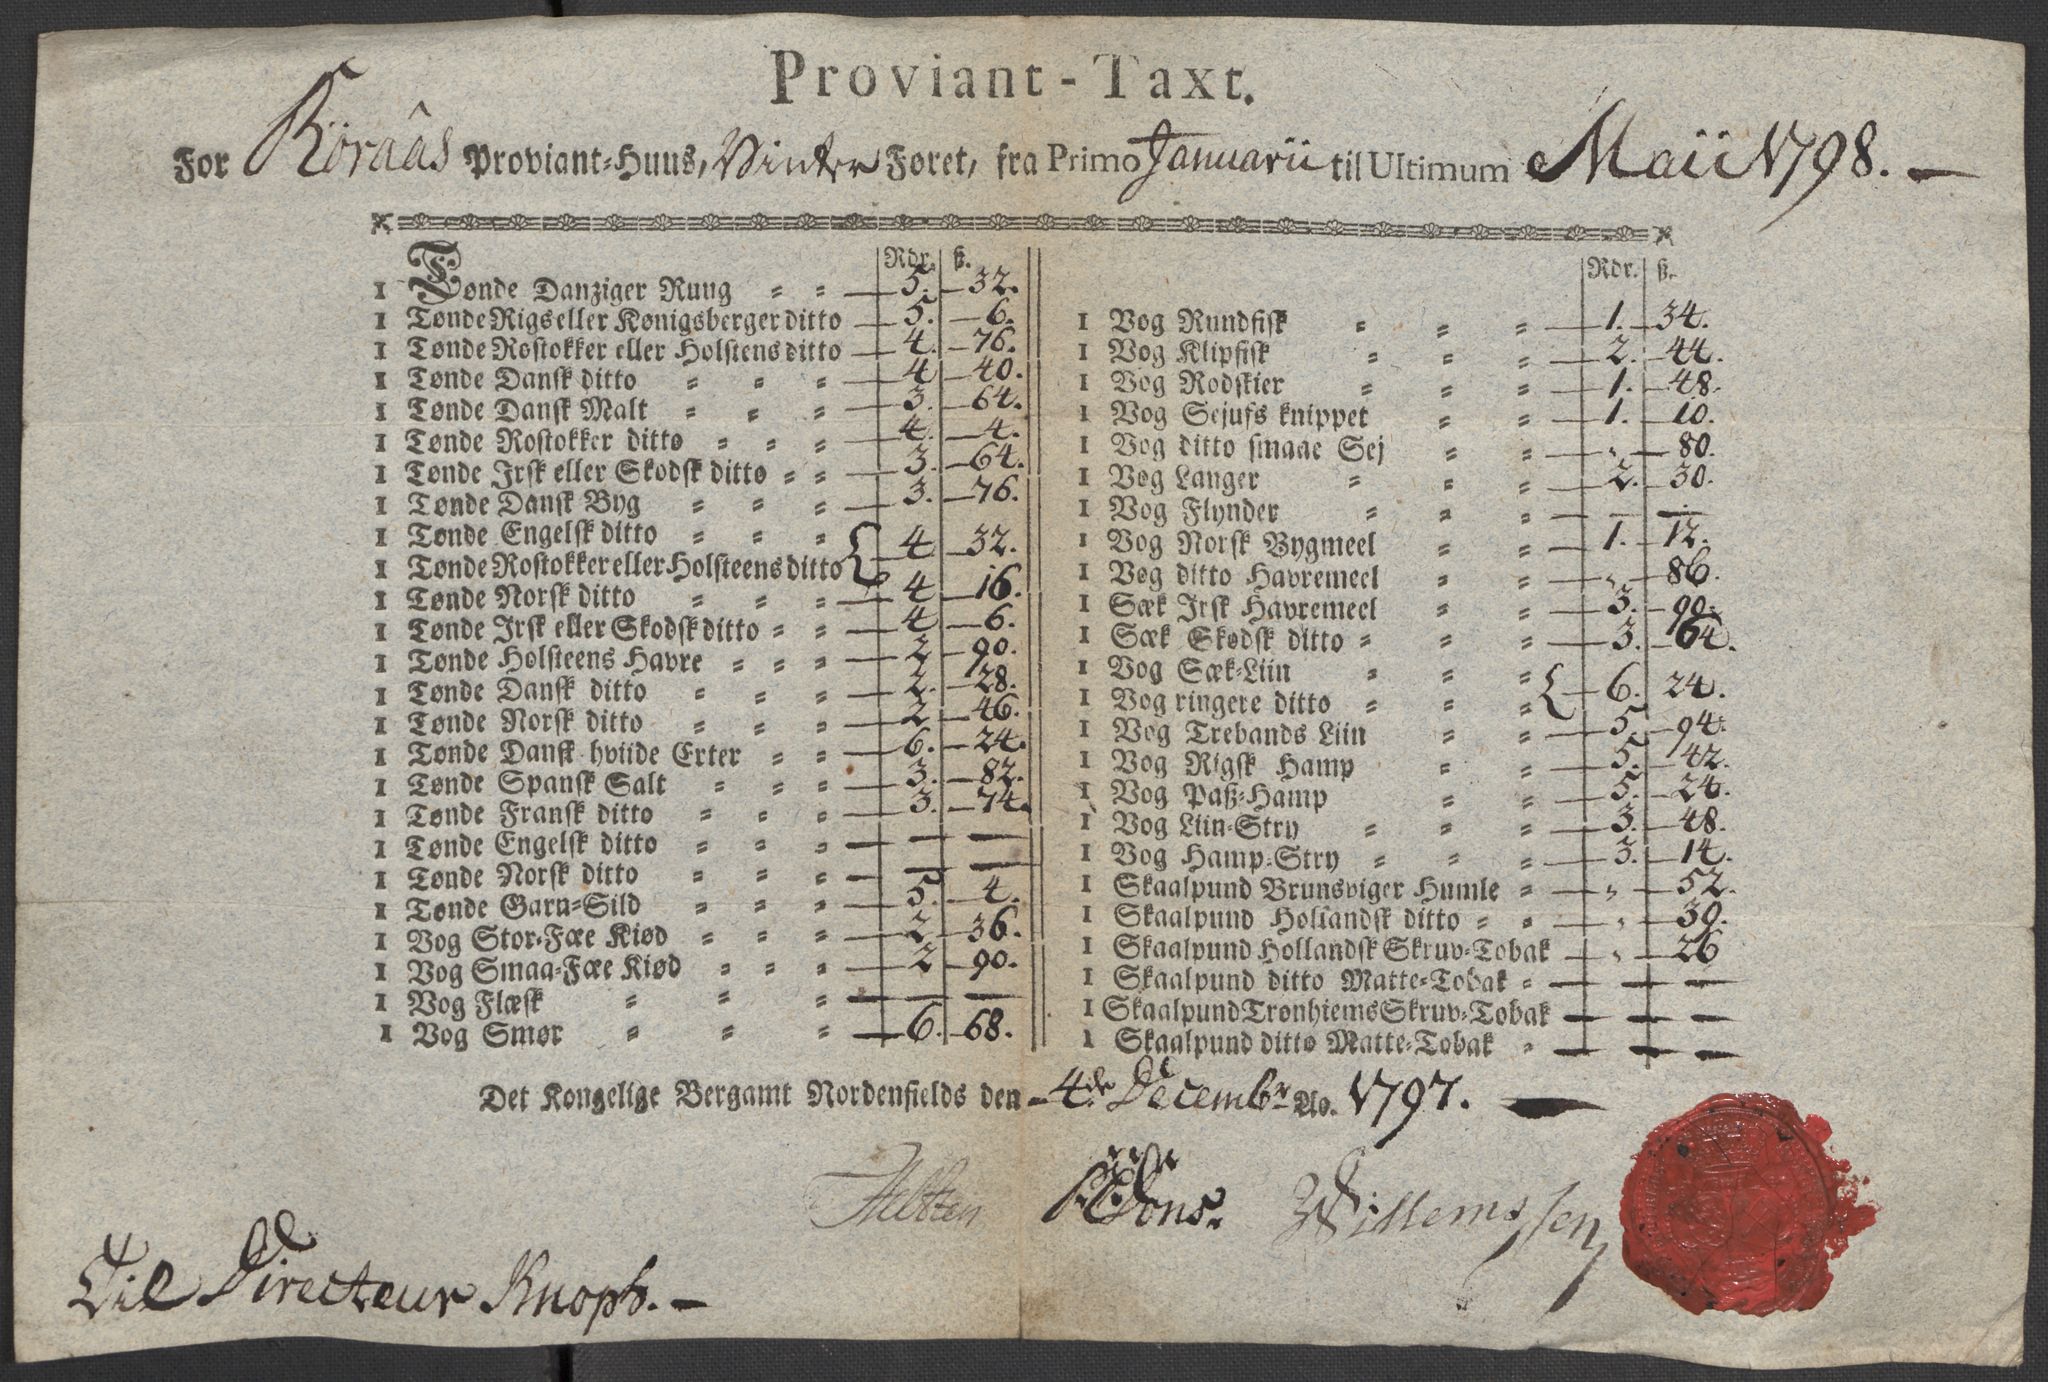 Proviant-Taxt.
For Röraås Proviant-Huus, Vinter Føret, fra Primo Januarii til Ultimum Maii 1798. —
Rdr. ß.
1 Tønde Danziger Rung 5. 32.
1 Tønde Rigs eller Kønigsberger ditto 5. 6.
1 Tønde Rostokker eller Holstens ditto 4. 76.
1 Tønde Dansk ditto 4 40.
1 Tønde Dansk Malt 3. 64.
1 Tønde Rostokker ditto 4. 4.
1 Tønde Irsk eller Skodsk ditto 3. 64.
1 Tønde Dansk Byg 3. 76.
1 Tønde Engelsk ditto
1 Tønde Rostokker eller Holsteens ditto } 4 32.
1 Tønde Norsk ditto 4 16.
1 Tønde Irsk eller Skodsk ditto 4 6.
1 Tønde Holsteens Havre 2 90.
1 Tønde Dansk ditto 2. 28.
1 Tønde Norsk ditto 2 46.
1 Tønde Dansk hviide Erter 6. 24.
1 Tønde Spansk Salt 3. 82.
1 Tønde Fransk ditto 3. 74.
1 Tønde Engelsk ditto — —
1 Tønde Norsk ditto — —
1 Tønde Garn-Sild 5. 4.
1 Vog Stor-Fæe Kiød 2 36.
1 Vog Smaa-Fæe Kiød 2 90.
1 Vog Flæsk — —
1 Vog Smør 6. 68.
Rdr. ß.
1 Vog Rundfisk 1. 34.
1 Vog Klipfisk 2. 44.
1 Vog Rodskier 1. 48.
1 Vog Sejufs knippet 1. 10.
1 Vog ditto smaae Sej „ 80.
1 Vog Langer 2. 30.
1 Vog Flynder — —
1 Vog Norsk Bygmeel 1. 12.
1 Vog ditto Havremeel „ 86.
1 Sæk Irsk Havremeel 3. 90.
1 Sæk Skodsk ditto 3. 64.
1 Vog Sæk-Liin
1 Vog ringere ditto } 6. 24.
1 Vog Trebands Liin 5. 94.
1 Vog Rigsk Hamp 5. 42.
1 Vog Paß-Hamp 5. 24.
1 Vog Liin-Stry 3. 48.
1 Vog Hamp-Stry 3. 14.
1 Skaalpund Brunsviger Humle „ 52.
1 Skaalpund Hollandsk ditto „ 30.
1 Skaalpund Hollandsk Skruv-Tobak „ 26
1 Skaalpund ditto Matte-Tobak — —
1 Skaalpund Tronhiems Skruv-Tobak — —
1 Skaalpund ditto Matte-Tobak — —
Det Kongelige Bergamt Nordenfields den 4de Decembr Ao. 1797. —
Dons. Willemssen
Til Directeur Knoph. —